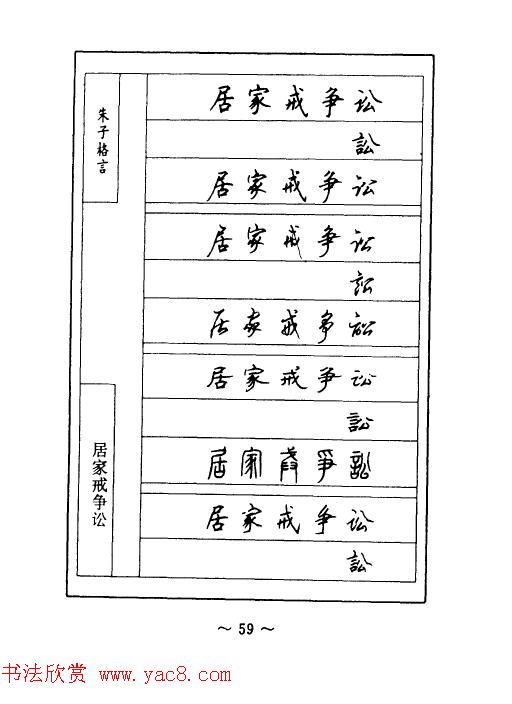 朱子格言
居家戒争讼
訟
居家戒争讼
居家戒争讼
訟
居家戒争訟
居家戒争讼
訟
居家戒爭訟
居家戒争讼
訟
居家戒争讼
～ 59 ～
书法欣赏 www.yac8.com